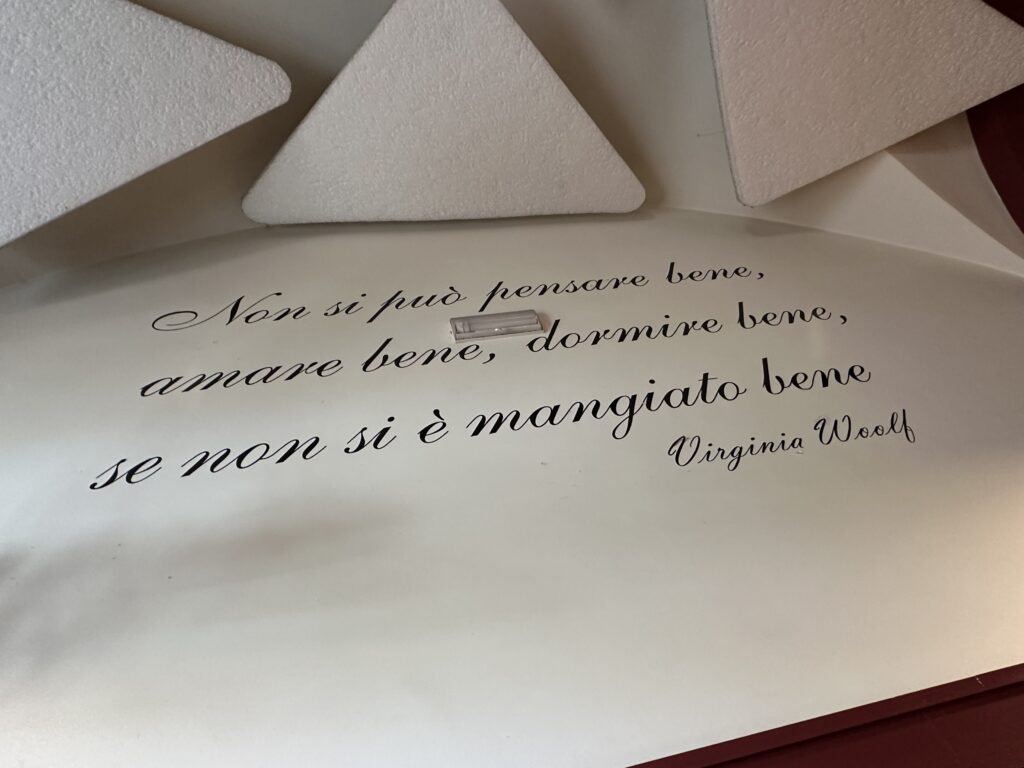 Non si può pensare bene,
amare bene, dormire bene,
se non si è mangiato bene
Virginia Woolf